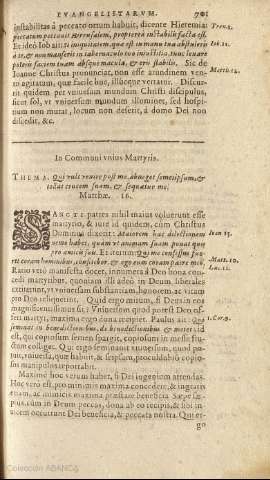 EVANGELISTARVM. 701
instabilitas à peccato ortum habuit, dicente Hieremia:
peccatum peccauit Hierusalem, propterea instabilis facta est.
Et ideò Iob ait: si iniquitatem, quæ est in manu tua abstuleris
à te, & non manserit in tabernaculo tuo iniustitia, tunc leuare
poteris faciem tuam absque macula, & eris stabilis. Sic de
Ioanne Christus pronunciat, non esse arundinem ven-
to agitatam, quæ facile huc, illucque vertatur. Discur-
rit quidem per vniuersum mundum Christi discipulus,
sicut sol, vt vniuersum mundum illuminet, sed hospi-
tium non mutat, locum non deserit, à domo Dei non
discedit, &c.
Tren. 1.
Iob 11.
Matth. 11.
In Communi vnius Martyris.
THEMA. Qui vult venire post me, abneget semetipsum, &
tollat crucem suam, & sequatur me.
Matthæ. 16.
SANCTI patres nihil maius voluerunt esse
martyrio, & iure id quidem, cum Christus
Dominus dixerit: Maiorem hac dilectionem
nemo habet, quam vt animam suam ponat quis
pro amicis suis. Et iterum: Qui me confessus fue-
rit coram hominibus, confitebor & ego eum coram patre meo.
Ratio verò manifesta docet, innumera à Deo bona con-
cedi martyribus, quoniam illi adeò in Deum liberales
extiterunt, vt vniuersam substantiam, honorem, ac vitam
pro Deo relinquerint. Quid ergo mirum, si Deus in eos
magnificentissimus sit?
Ioan. 15.
Matt. 10.
Luc. 12.
Paulus ait: Qui
seminat in benedictionibus, de benedictionibus & metet: id
est, qui copiosum semen spargit, copiosum in messe fru-
ctum colliget. Qui ergo seminauit vniuersum, quod po-
tuit, vniuersa, quæ habuit, & seipsum, proculdubiò copio-
sum manipulum reportabit.
1. Cor. 9.
Maximè hoc verum habet, si Dei ingenium attendas.
Hoc verò est, pro minimis maxima concedere, & ingratis
etiam, ac inimicis maxima præstare beneficia. Sæpe sæ-
pius, cum in Deum peccas, dona ab eo recipis, & sibi in-
uicem occurrunt Dei beneficia, & peccata nostra. Qui er-
go
Colección ABANCA